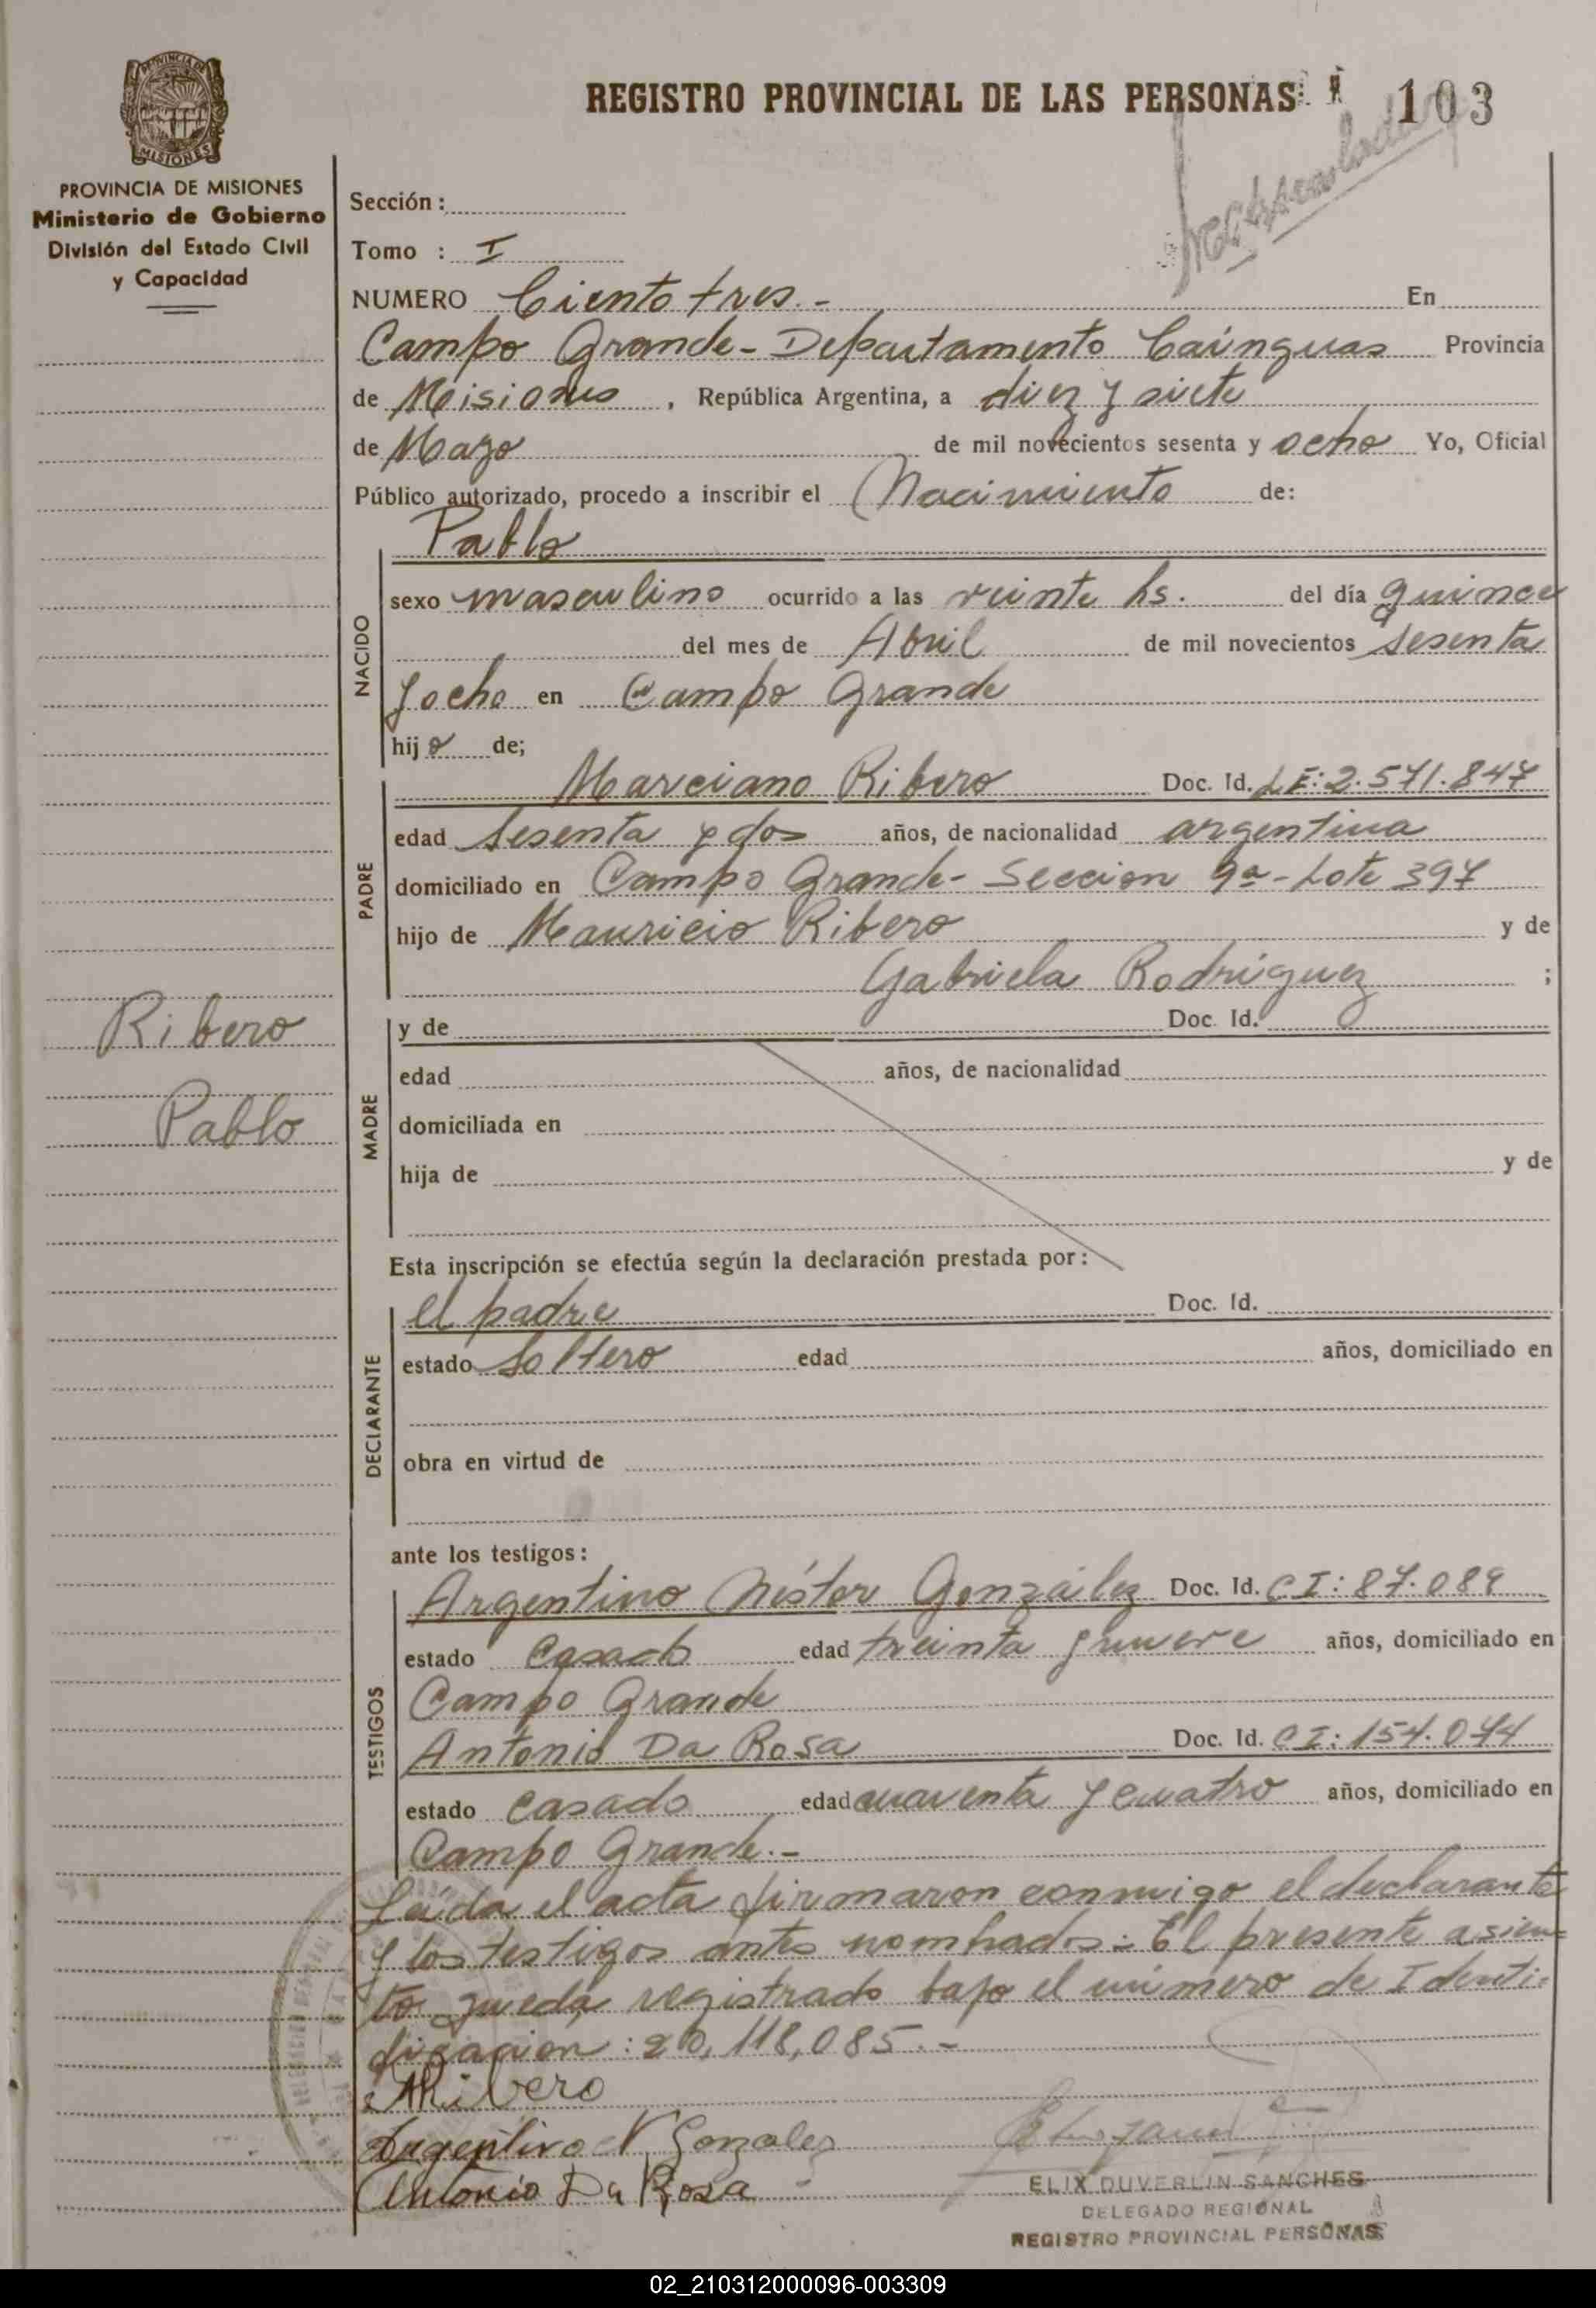 REGISTRO PROVINCIAL DE LAS PERSONAS
103
PROVINCIA DE
MISIONES
PROVINCIA DE MISIONES
Ministerio de Gobierno
División del Estado Civil
y Capacidad
Ribero
Pablo
Sección:
Tomo : I
NUMERO Ciento tres.- En
Campo Grande- Departamento Cainguas Provincia
de Misiones, República Argentina, a diez y siete
de Mayo de mil novecientos sesenta y ocho Yo, Oficial
Público autorizado, procedo a inscribir el Nacimiento de:
Pablo
NACIDO
sexo masculino ocurrido a las veinte hs. del día quince
del mes de Abril de mil novecientos sesenta
y ocho en Campo Grande
hijo de;
PADRE
Marciano Ribero Doc. Id. LE: 2.571.847
edad sesenta y dos años, de nacionalidad argentina
domiciliado en Campo Grande- Seccion 9a-Lote 397
hijo de Mauricio Ribero y de
Gabriela Rodriguez ;
MADRE
y de Doc. Id.
edad años, de nacionalidad
domiciliada en
hija de y de
Esta inscripción se efectúa según la declaración prestada por:
DECLARANTE
el padre Doc. Id.
estado soltero edad años, domiciliado en
obra en virtud de
ante los testigos:
TESTIGOS
Argentino Néstor González Doc. Id. CI: 87.089
estado casado edad treinta y nueve años, domiciliado en
Campo Grande
Antonio Da Rosa Doc. Id. CI: 154.044
estado casado edad cuarenta y cuatro años, domiciliado en
Campo Grande.-
Leída el acta firmaron conmigo el declarante
y los testigos antes nombrados.- El presente asien=
to queda registrado bajo el número de Identi=
ficación: 20,118,085.-
MRibero
Argentino N Gonzalez
Antonio Da Rosa
ELIX DUVERLIN SANCHES
DELEGADO REGIONAL
REGISTRO PROVINCIAL PERSONAS
02_210312000096-003309